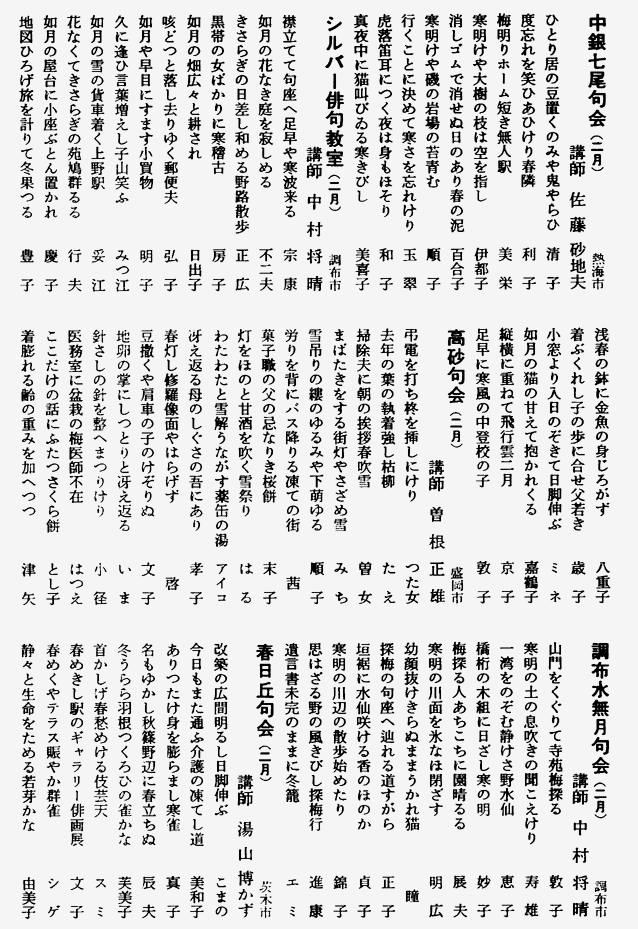 中銀七尾句会(二月)
熱海市
講師 佐藤 砂地夫
ひとり居の豆置くのみや鬼やらひ 清子
度忘れを笑ひあひけり春隣 利子
梅明りホーム短き無人駅 美栄
寒明けや大樹の枝は空を指し 伊都子
消しゴムで消せぬ日のあり春の泥 百合子
寒明けや磯の岩場の苔青む 順子
行くことに決めて寒さを忘れけり 玉翠
虎落笛耳につく夜は身もほそり 和子
真夜中に猫叫びゐる寒きびし 美喜子
シルバー俳句教室(二月)
調布市
講師 中村 将晴
襟立てて句座へ足早や寒波来る 宗康
如月の花なき庭を寂しめる 不二夫
きさらぎの日差し和める野路散歩 正広
黒帯の女ばかりに寒稽古 房子
如月の畑広々と耕され 日出子
咳どつと落し去りゆく郵便夫 弘子
如月や早目にすます小買物 明子
久に逢ひ言葉増えし子山笑ふ みつ江
如月の雪の貨車着く上野駅 妥江
花なくてきさらぎの苑鳩群るる 行夫
如月の屋台に小座ぶとん置かれ 慶子
地図ひろげ旅を計りて冬果つる 豊子
浅春の鉢に金魚の身じろがず 八重子
着ぶくれし子の歩に合せ父若き 歳子
小窓より入日のぞきて日脚伸ぶ ミネ
如月の猫の甘えて抱かれくる 嘉鶴子
縦横に重ねて飛行雲二月 京子
足早に寒風の中登校の子 敦子
高砂句会(二月)
盛岡市
講師 曽根 正雄
弔電を打ち柊を挿しにけり つた女
去年の葉の執着強し枯柳 たえ
掃除夫に朝の挨拶春吹雪 曽女
まばたきをする街灯やさざめ雪 みち
雪吊りの縷のゆるみや下萌ゆる 順子
労りを背にバス降りる凍ての街 茜
菓子職の父の忌なりき桜餅 末子
灯をほのと甘酒を吹く雪祭り はる
わたわたと雪解うながす薬缶の湯 アイコ
冴え返る母のしぐさの吾にあり 孝子
春灯し修羅像面やはらげず 啓
豆撒くや肩車の子のけぞりぬ 文子
地卵の掌にしつとりと冴え返る いま
針さしの針を整へまつりけり 小径
医務室に盆栽の梅医師不在 はつえ
ここだけの話にふたつさくら餅 とし子
着膨れる齢の重みを加へつつ 津矢
調布水無月句会(二月)
調布市
講師 中村 将晴
山門をくぐりて寺苑梅探る 敦子
寒明の土の息吹きの聞こえけり 寿雄
一湾をのぞむ静けさ野水仙 恵子
橋桁の木組に日ざし寒の明 妙子
梅探る人あちこちに園晴るる 展夫
寒明の川面を氷なほ閉ざす 明広
幼顔抜けきらぬままうかれ猫 瞳
探梅の句座へ辿れる道すがら 正子
垣裾に水仙咲ける香のほのか 貞子
寒明の川辺の散歩始めたり 錦子
思はざる野の風きびし探梅行 進康
遺言書未完のままに冬籠 エミ
春日丘句会(二月)
茨木市
講師 湯山 博かず
改築の広間明るし日脚伸ぶ こまの
今日もまた通ふ介護の凍てし道 美和子
ありつたけ身を膨らまし寒雀 真子
名もゆかし秋篠野辺に春立ちぬ 辰夫
冬うらら羽根つくろひの雀かな 芙美子
首かしげ春愁めける伎芸天 スミ
春めきし駅のギャラリー俳画展 文子
春めくやテラス賑やか群雀 シゲ
静々と生命をためる若芽かな 由美子